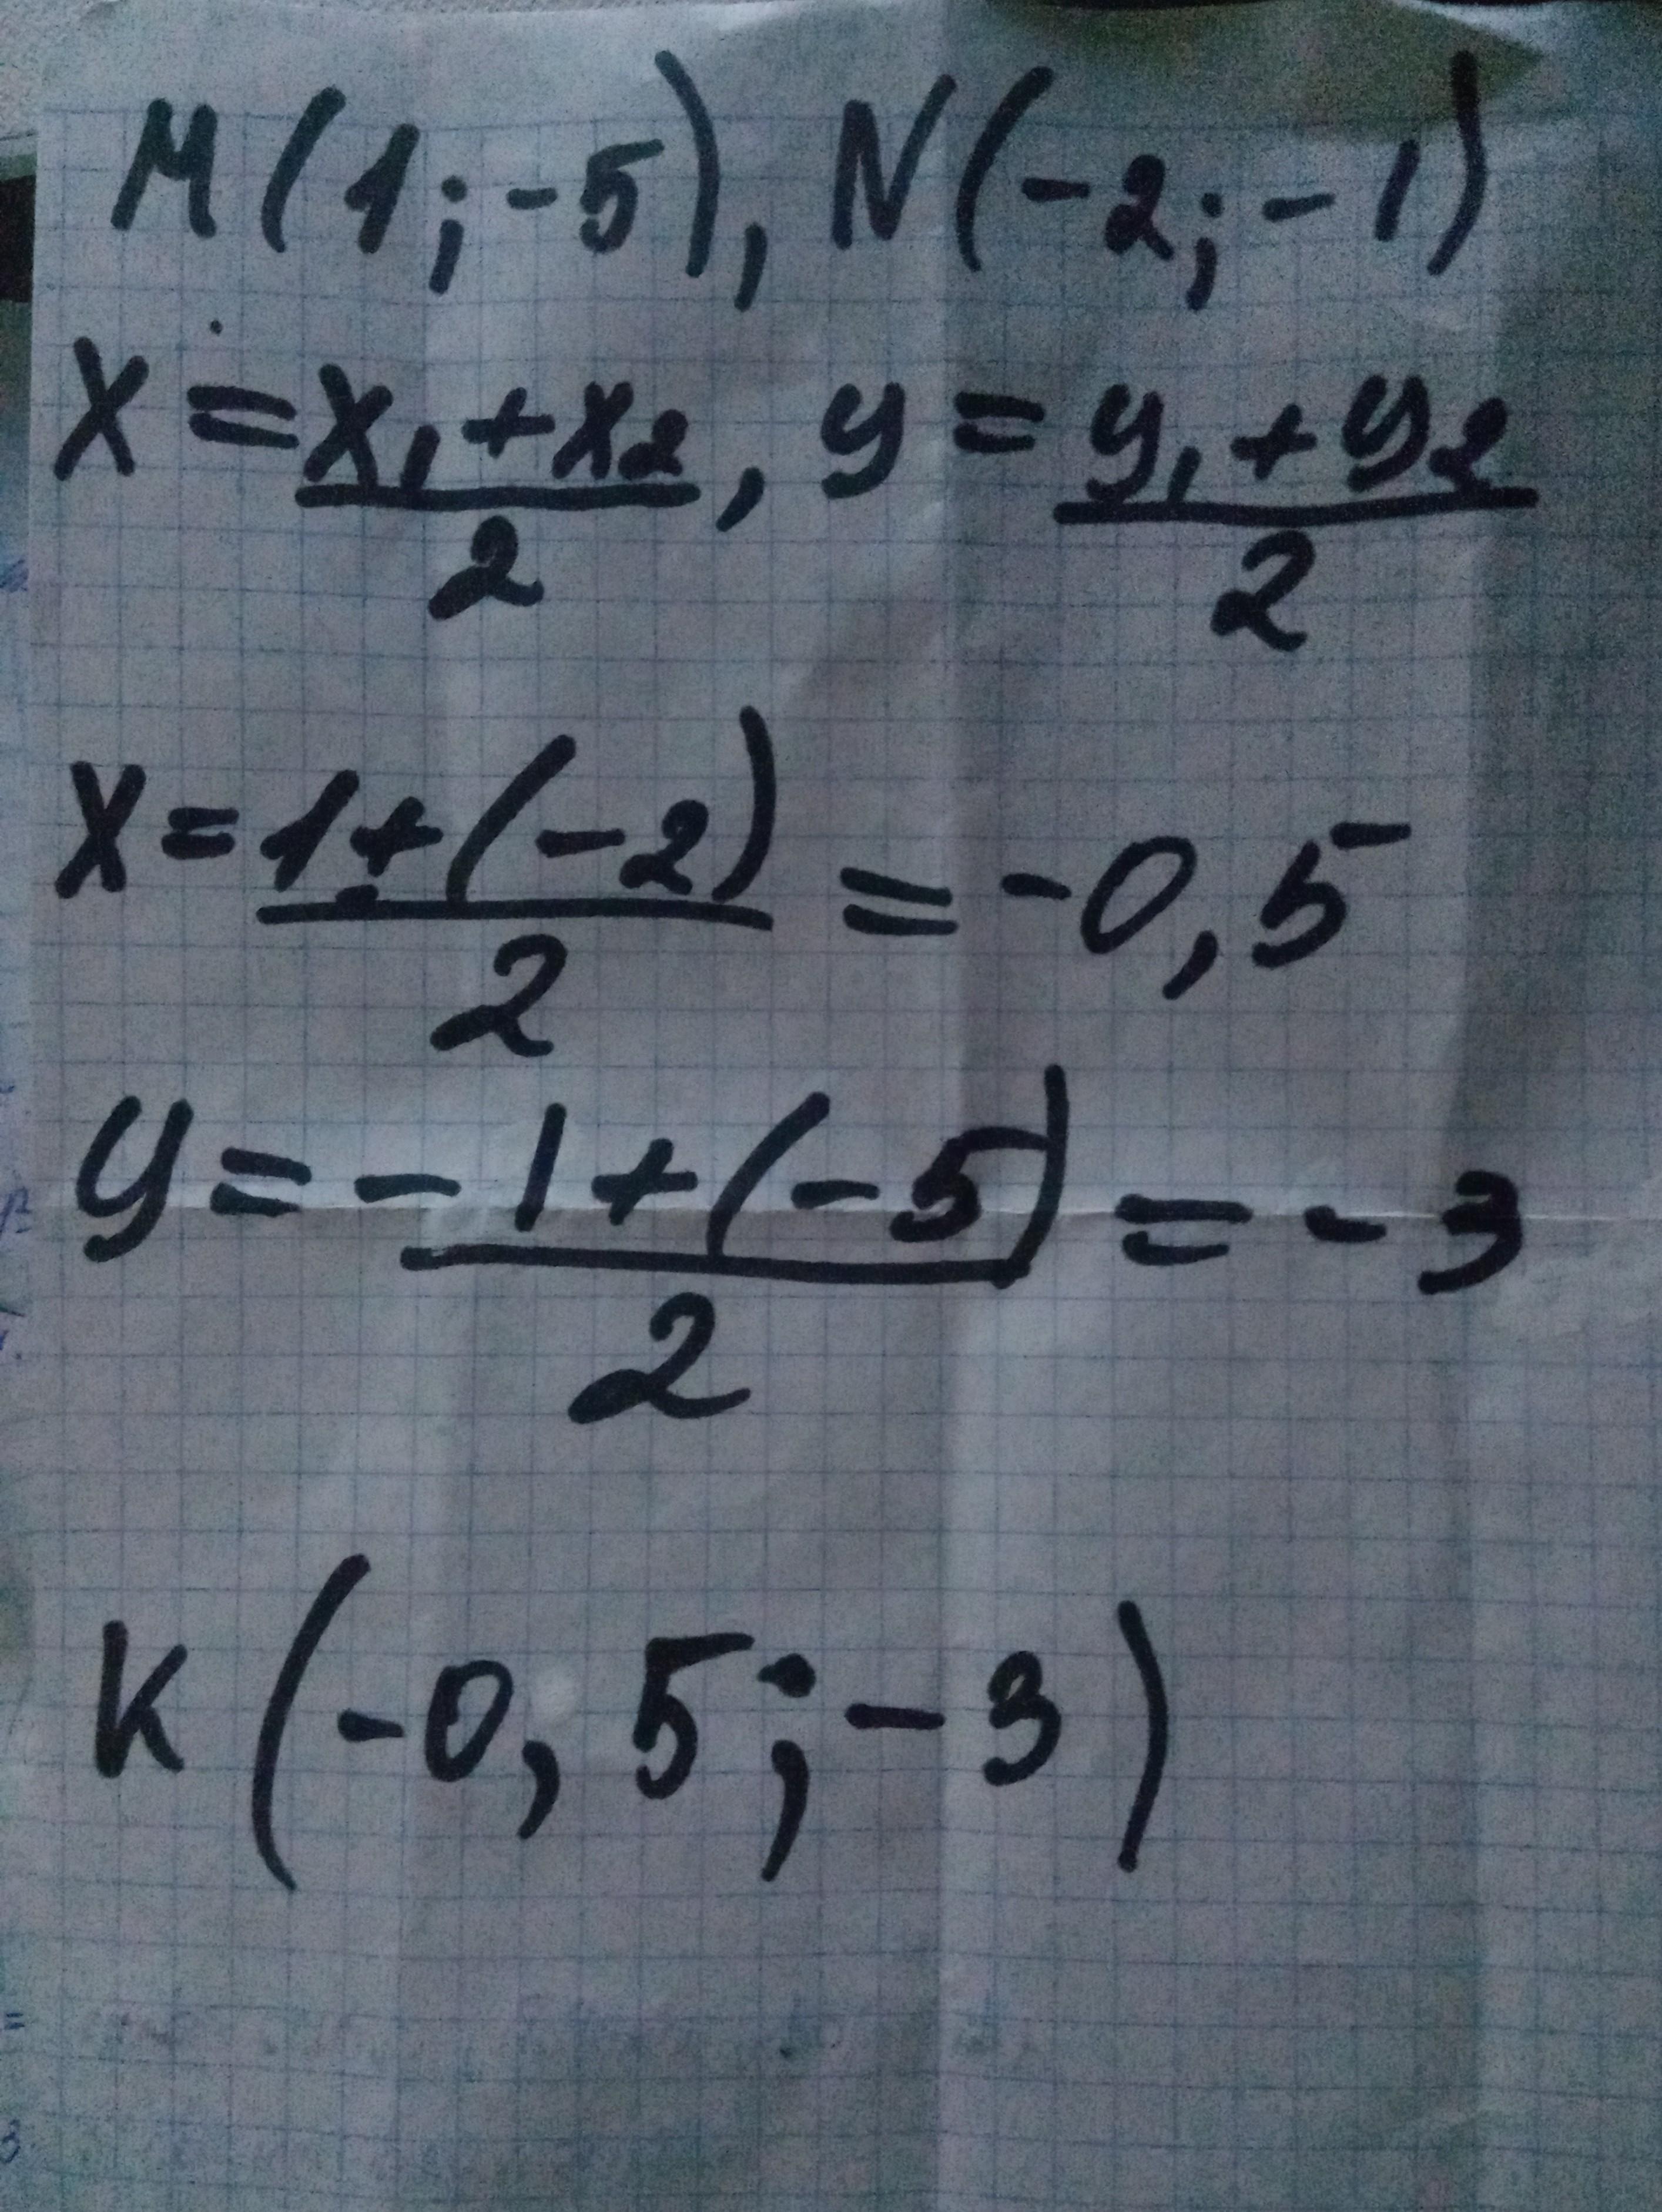 М(1;-5), N(-2;-1)
x = x₁+x₂/2, y = y₁+y₂/2
x = 1+(-2)/2 = -0,5
y = -1+(-5)/2 = -3
К(-0,5;-3)